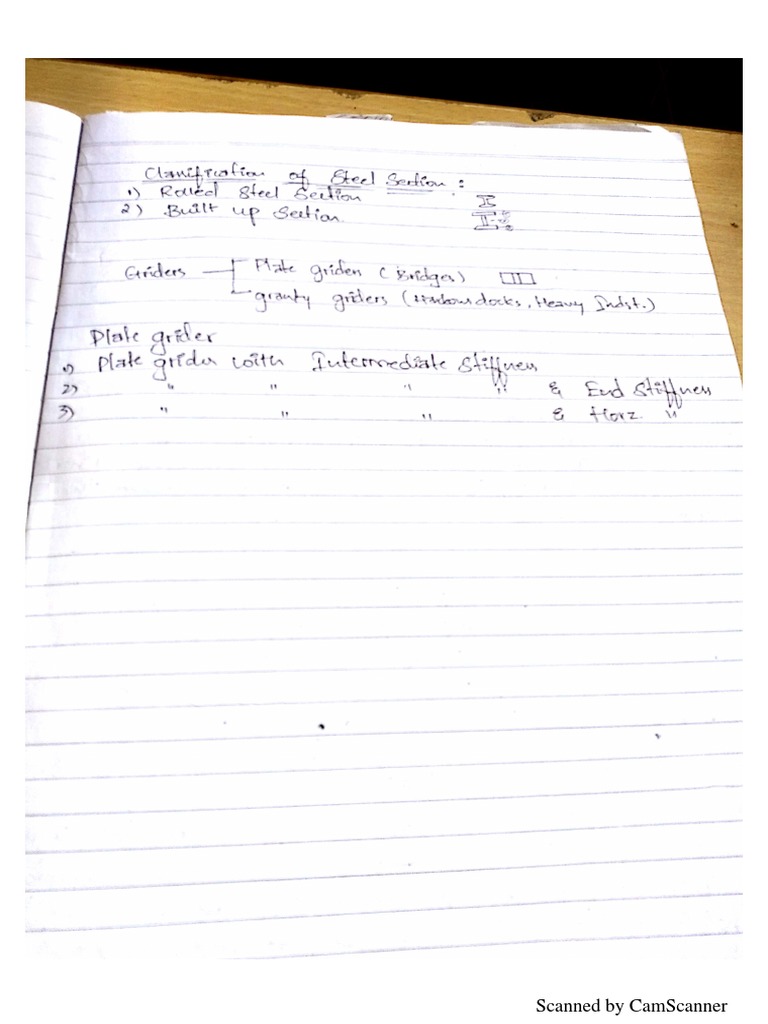 Classification of Steel Section :
1) Rolled Steel Section
2) Built up Section
Griders Plate griders (Bridges)
granty griders (Harbour docks, Heavy Indst.)
Plate grider
1) Plate grider with Intermediate Stiffness
2) " " " " & End Stiffness
3) " " " & Horz. "
Scanned by CamScanner